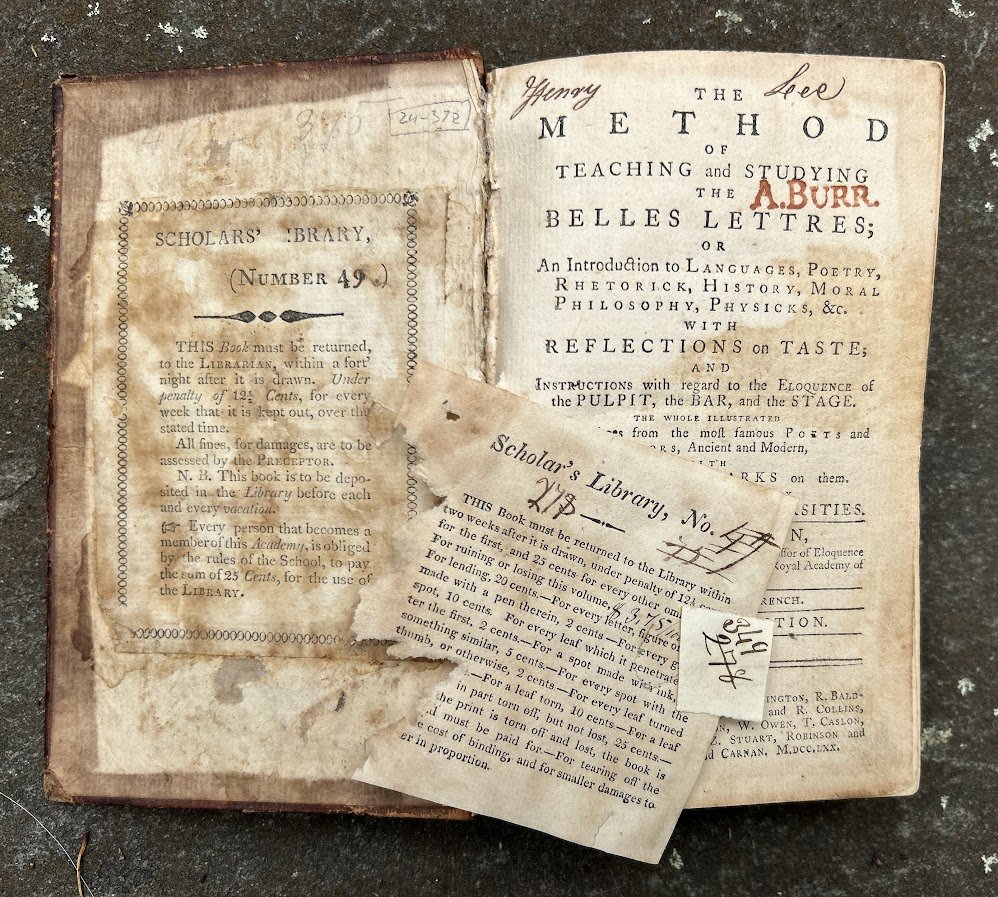 24-372
SCHOLARS' IBRARY,
(NUMBER 49.)
THIS Book must be returned,
to the LIBRARIAN, within a fort'
night after it is drawn. Under
penalty of 12½ Cents, for every
week that it is kept out, over the
stated time.
All fines, for damages, are to be
assessed by the PRECEPTOR.
N. B. This book is to be depo-
sited in the Library before each
and every vacation.
☞ Every person that becomes a
member of this Academy, is obliged
by the rules of the School, to pay
the sum of 25 Cents, for the use of
the LIBRARY.
Henry Lee
THE
METHOD
OF
TEACHING and STUDYING
THE
A. BURR.
BELLES LETTRES;
OR
An Introduction to LANGUAGES, POETRY,
RHETORICK, HISTORY, MORAL
PHILOSOPHY, PHYSICKS, &c.
WITH
REFLECTIONS on TASTE;
AND
INSTRUCTIONS with regard to the ELOQUENCE of
the PULPIT, the BAR, and the STAGE.
THE WHOLE ILLUSTRATED
from the most famous POETS and
ORS, Ancient and Modern,
WITH
ARKS on them.
RSITIES.
N,
ffor of Eloquence
Royal Academy of
RENCH.
TION.
INGTON, R. BALD-
and R. COLLINS,
ON, W. OWEN, T. CASLON,
STUART, ROBINSON and
CARNAN. M,DCC,LXX.
Scholar's Library, No. 49
278
THIS Book must be returned to the Library within
two weeks after it is drawn, under penalty of 12½
for the first, and 25 cents for every other
For ruining or losing this volume, $ 3,75
For lending, 20 cents.—For every letter, figure or
made with a pen therein, 2 cents.—For every
spot, 10 cents. For every leaf which it penetrate
ter the first, 2 cents.—For a spot made with ink,
something similar, 5 cents.—For every spot with the
thumb, or otherwise, 2 cents.—For every leaf turned
—For a leaf torn, 10 cents.—For a leaf
in part torn off, but not lost, 25 cents.—
the print is torn off and lost, the book is
must be paid for.—For tearing off the
cost of binding, and for smaller damages to
er in proportion.
349
278